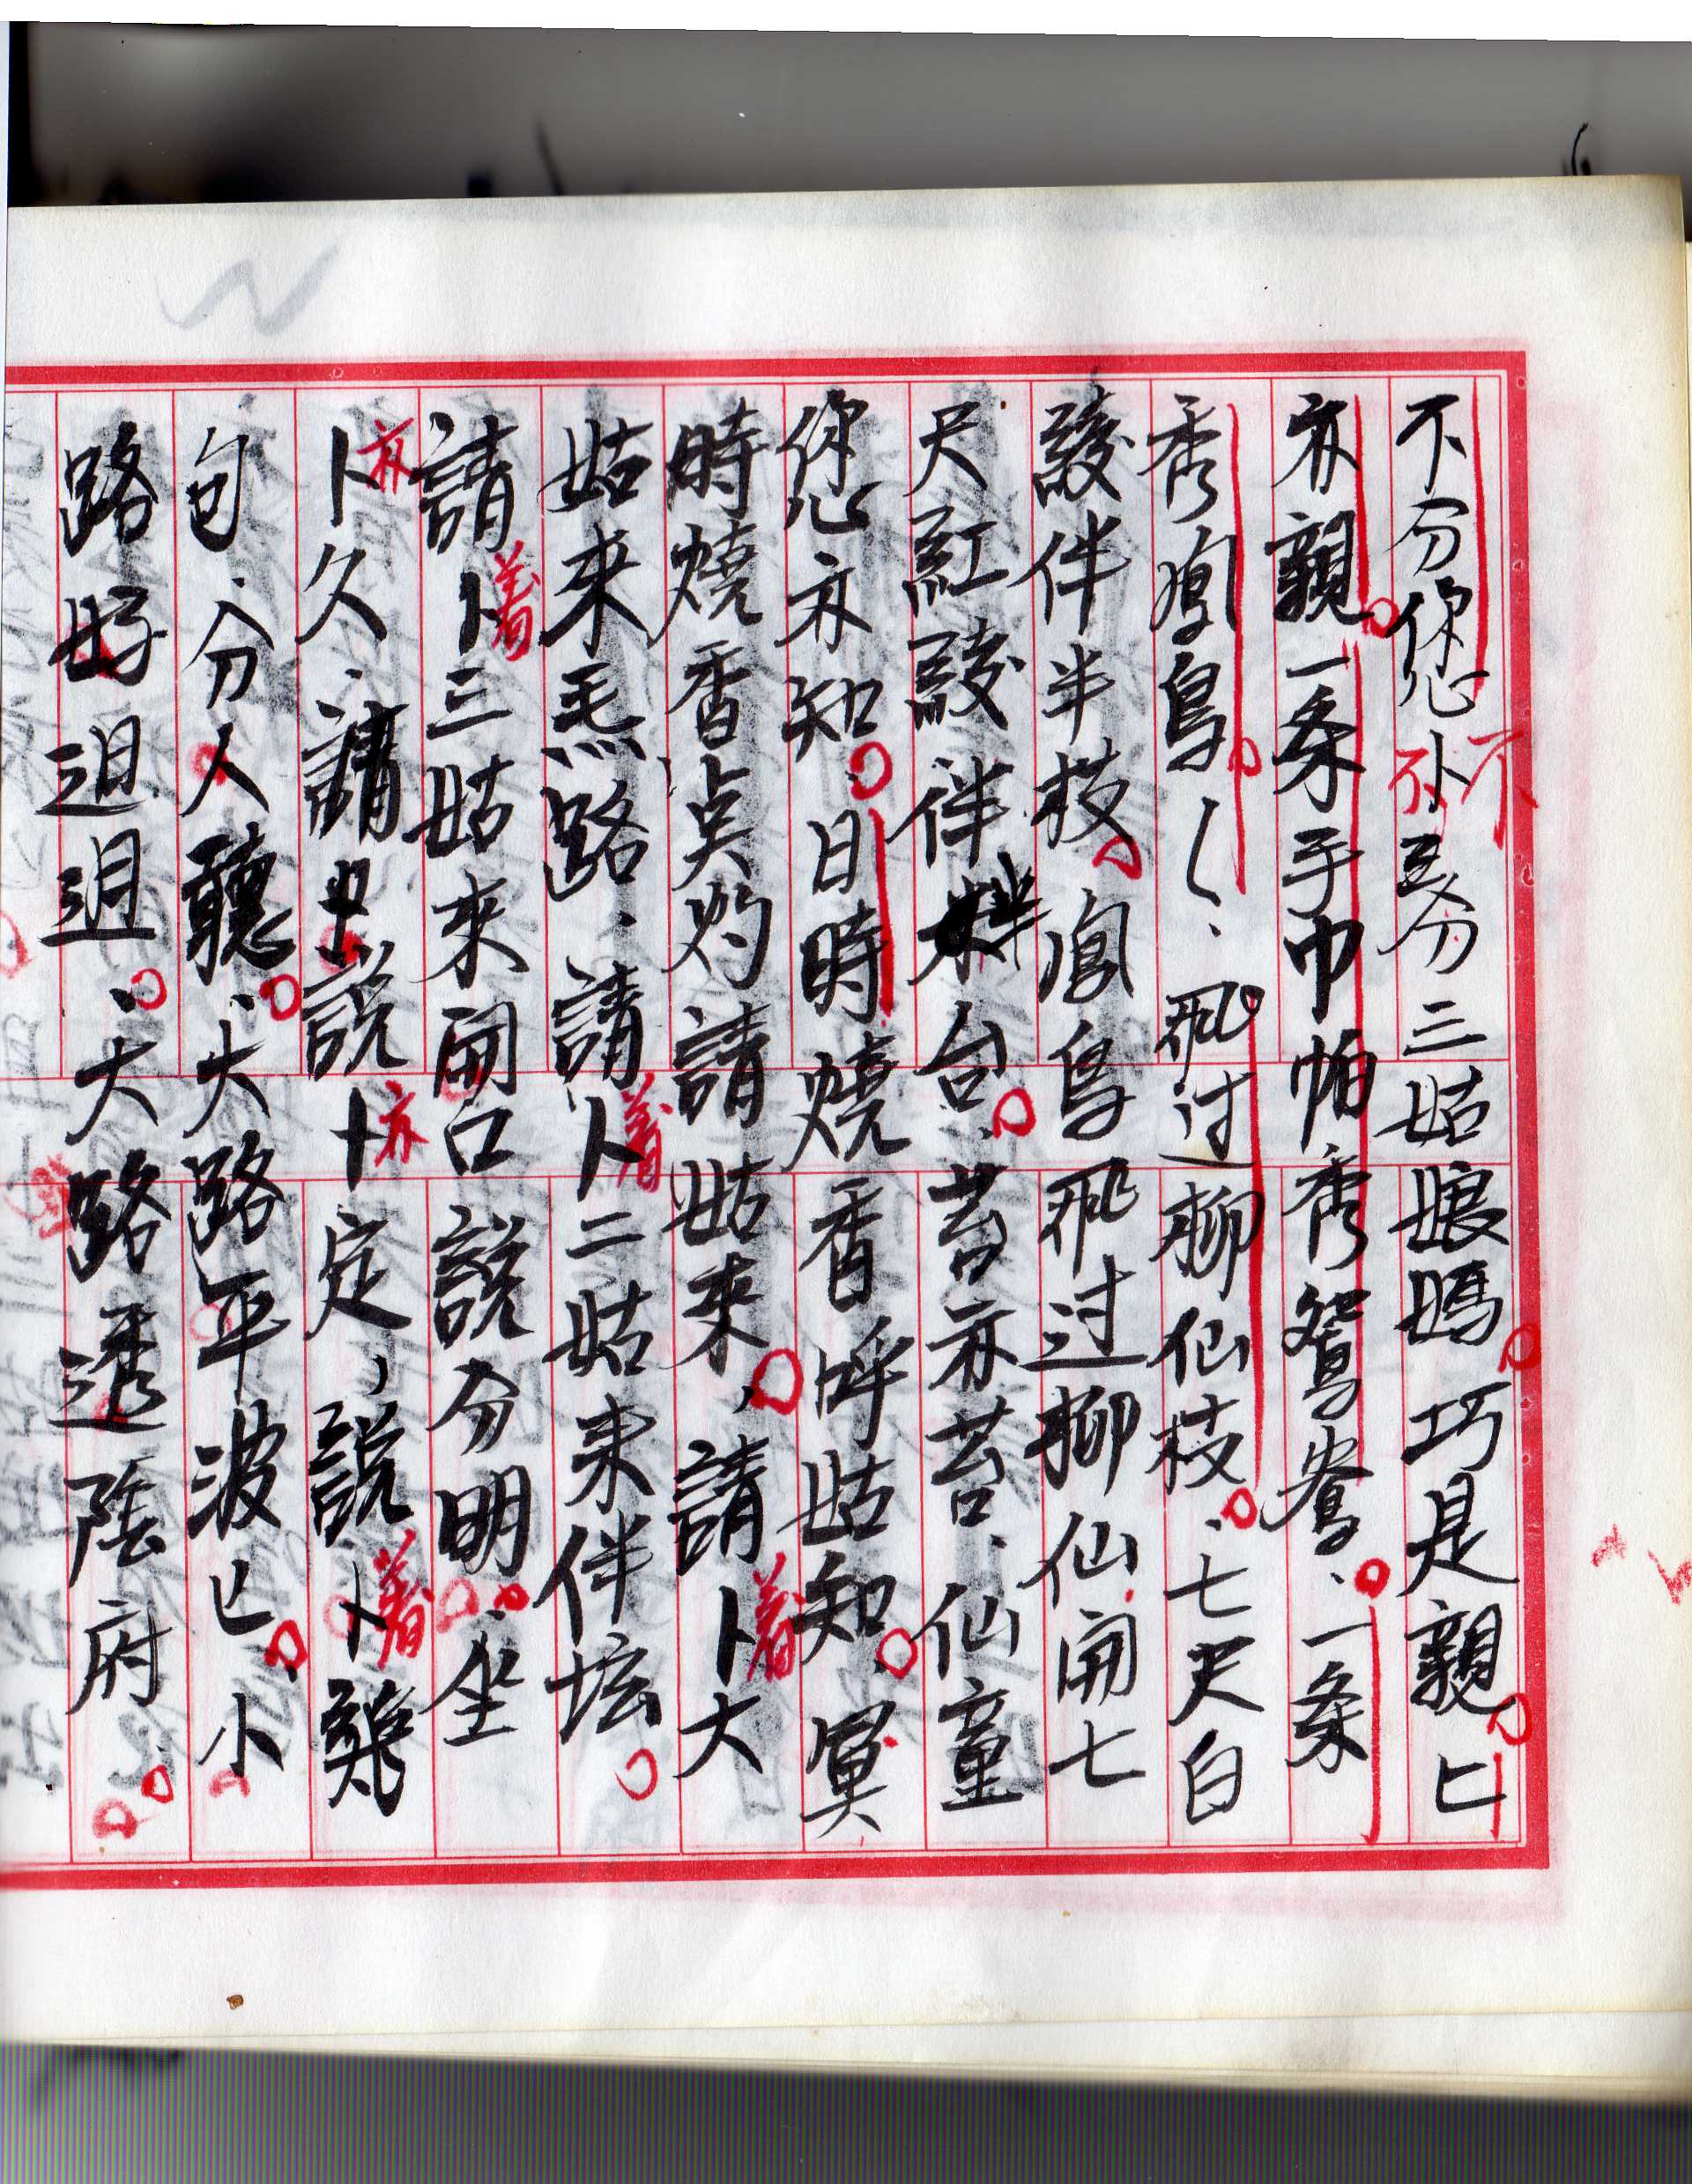 不分您卜丢分三姑娘媽。巧是親匕
亦親。一条手巾帕秀鴛鴦、一条
秀鳳鳥〱、飛过柳仙枝。七尺白
綾伴半枝。鳳鳥飛过柳仙開七
尺紅綾伴 台。苔亦苔、仙童
您亦知。日時燒香呼姑知。冥
時燒香点灼請姑來。請卜着大
姑來炁路、請卜着二姑來伴坛。
請卜着三姑來開口說分明。坐
卜亦久、請 說卜亦定、說卜着幾
句、分人聽。大路平波匕。小
路好迌迌。大路透陰府。